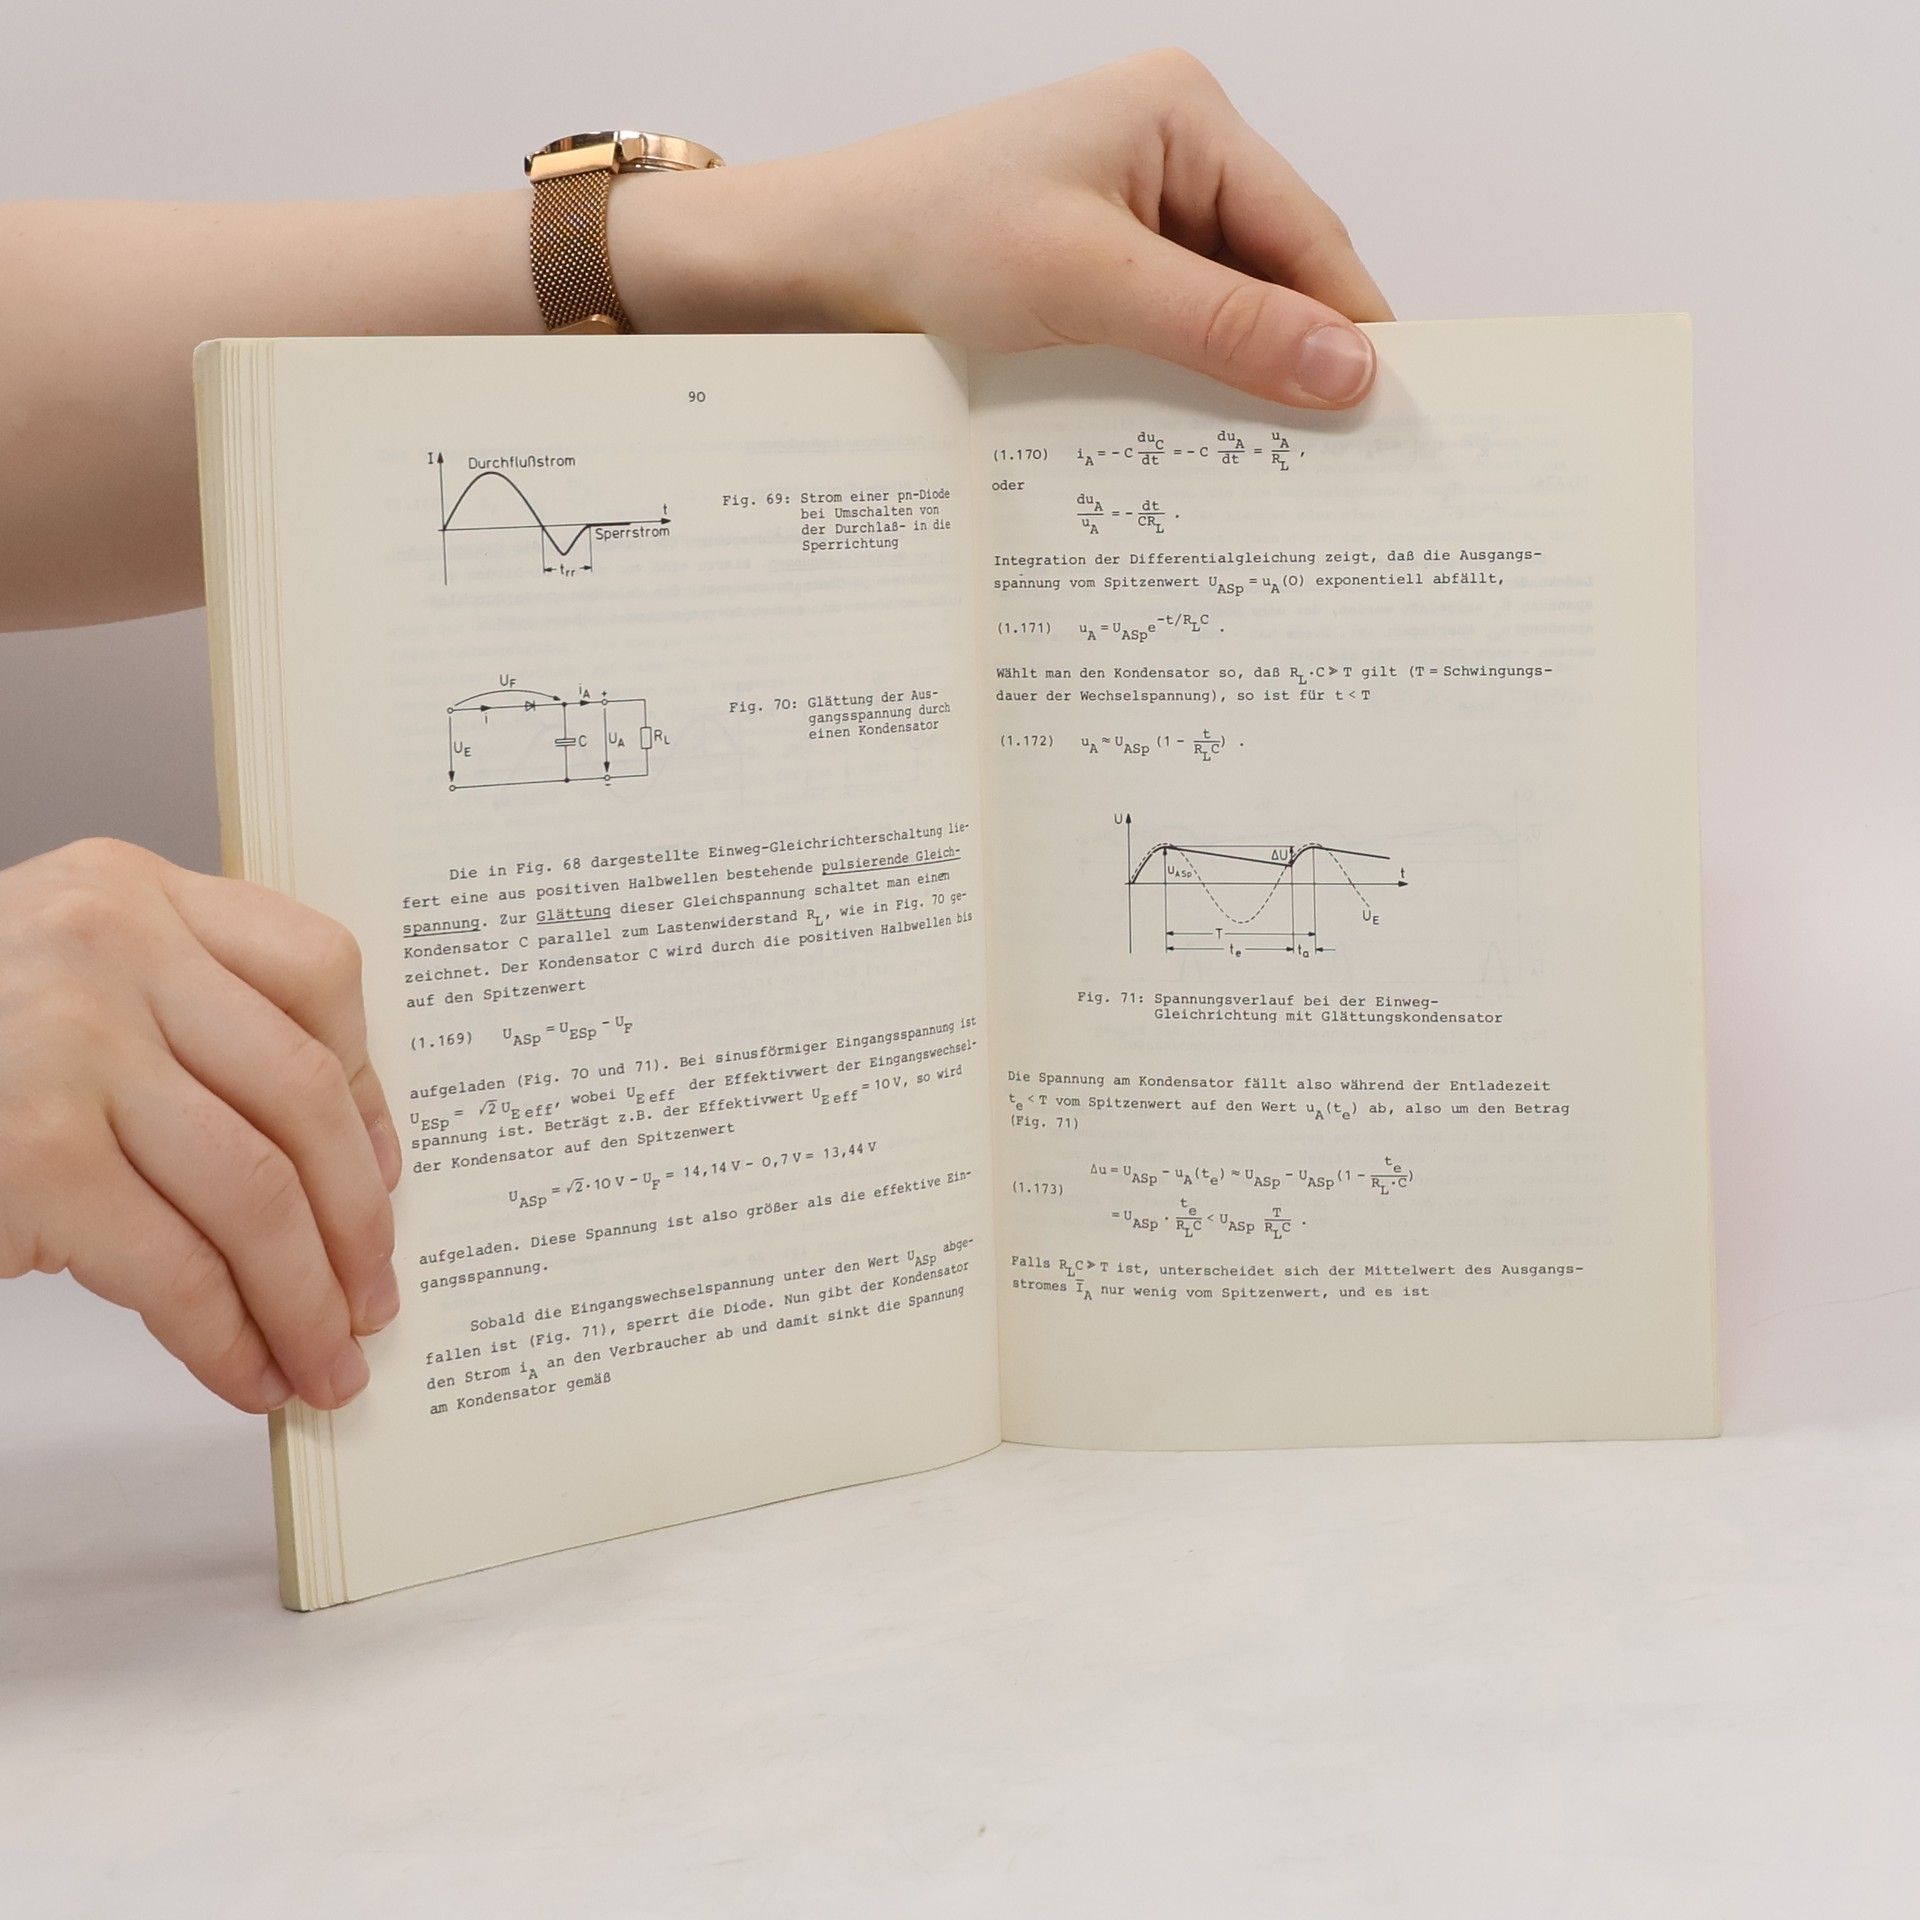 90
I
Durchflußstrom
t
Sperrstrom
t_rr
Fig. 69: Strom einer pn-Diode
bei Umschalten von
der Durchlaß- in die
Sperrichtung
U_F
i
i_A
+
U_E
C
U_A
R_L
-
Fig. 70: Glättung der Aus-
gangsspannung durch
einen Kondensator
Die in Fig. 68 dargestellte Einweg-Gleichrichterschaltung lie-
fert eine aus positiven Halbwellen bestehende pulsierende Gleich-
spannung. Zur Glättung dieser Gleichspannung schaltet man einen
Kondensator C parallel zum Lastenwiderstand R_L, wie in Fig. 70 ge-
zeichnet. Der Kondensator C wird durch die positiven Halbwellen bis
auf den Spitzenwert
(1.169) U_ASp = U_ESp - U_F
aufgeladen (Fig. 70 und 71). Bei sinusförmiger Eingangsspannung ist
U_ESp = √2 U_E eff, wobei U_E eff der Effektivwert der Eingangswechsel-
spannung ist. Beträgt z.B. der Effektivwert U_E eff = 10 V, so wird
der Kondensator auf den Spitzenwert
U_ASp = √2·10 V - U_F = 14,14 V - 0,7 V = 13,44 V
aufgeladen. Diese Spannung ist also größer als die effektive Ein-
gangsspannung.
Sobald die Eingangswechselspannung unter den Wert U_ASp abge-
fallen ist (Fig. 71), sperrt die Diode. Nun gibt der Kondensator
den Strom i_A an den Verbraucher ab und damit sinkt die Spannung
am Kondensator gemäß
(1.170) i_A = - C du_C/dt = - C du_A/dt = u_A/R_L ,
oder
du_A/u_A = - dt/CR_L .
Integration der Differentialgleichung zeigt, daß die Ausgangs-
spannung vom Spitzenwert U_ASp = u_A(0) exponentiell abfällt,
(1.171) u_A = U_ASp e^-t/R_LC .
Wählt man den Kondensator so, daß R_L·C ≫ T gilt (T = Schwingungs-
dauer der Wechselspannung), so ist für t < T
(1.172) u_A ≈ U_ASp (1 - t/R_LC) .
U
ΔU
U_ASp
t
U_E
T
t_e
t_a
Fig. 71: Spannungsverlauf bei der Einweg-
Gleichrichtung mit Glättungskondensator
Die Spannung am Kondensator fällt also während der Entladezeit
t_e < T vom Spitzenwert auf den Wert u_A(t_e) ab, also um den Betrag
(Fig. 71)
Δu = U_ASp - u_A(t_e) ≈ U_ASp - U_ASp (1 - t_e/R_L·C)
(1.173)
= U_ASp · t_e/R_LC < U_ASp T/R_LC .
Falls R_LC ≫ T ist, unterscheidet sich der Mittelwert des Ausgangs-
stromes Ī_A nur wenig vom Spitzenwert, und es ist